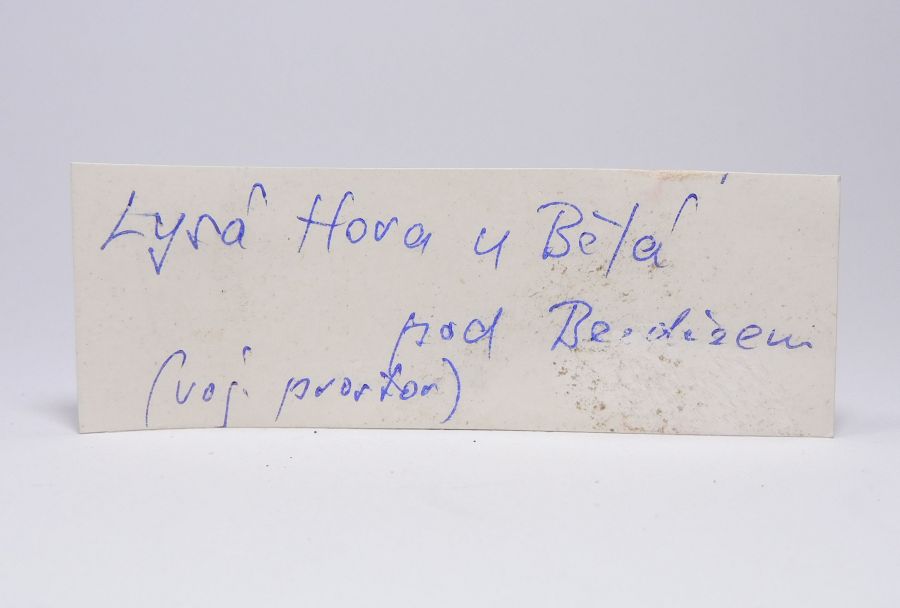 Lysá Hora u Bělá
pod Bezdězem
(voj. prostor)